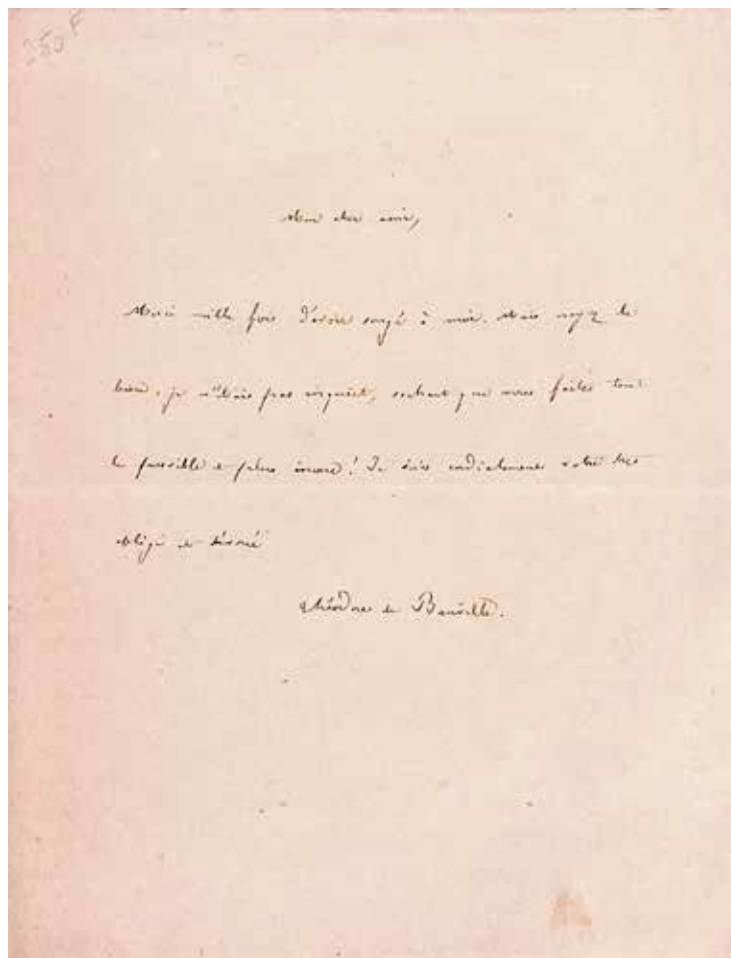 350 F
Mon cher ami,
Merci mille fois d'avoir songé à moi. Mais croyez le
bien, je n'étais pas inquiet, sachant que vous faites tout
le possible et plus encore! Je suis cordialement votre très
obligé et dévoué
Théodore de Banville.